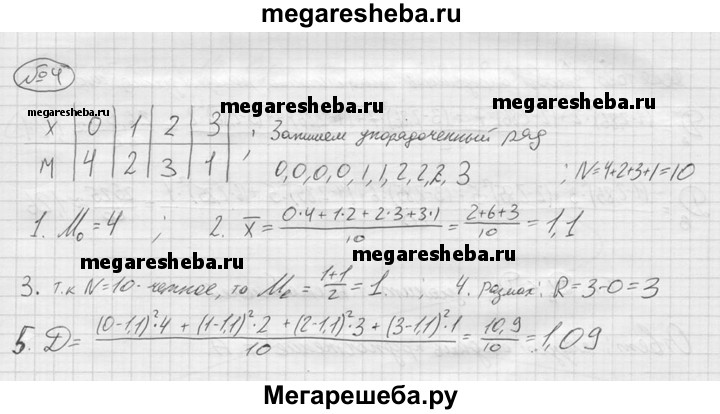 megaresheba.ru
№4
X | 0 | 1 | 2 | 3
M | 4 | 2 | 3 | 1
; Запишем упорядоченный ряд
0,0,0,0,1,1,2,2,2,3 ; N=4+2+3+1=10
megaresheba.ru
megaresheba.ru
megaresheba.ru
1. M₀=4 ; 2. x̄ = (0·4+1·2+2·3+3·1)/10 = (2+6+3)/10 = 1,1
megaresheba.ru
megaresheba.ru
3. т.к N=10-четное, то Me = (1+1)/2 = 1 ; 4. размах: R=3-0=3
5. D = ((0-1,1)²·4 + (1-1,1)²·2 + (2-1,1)²·3 + (3-1,1)²·1)/10 = 10,9/10 = 1,09
Мегарешеба.ру